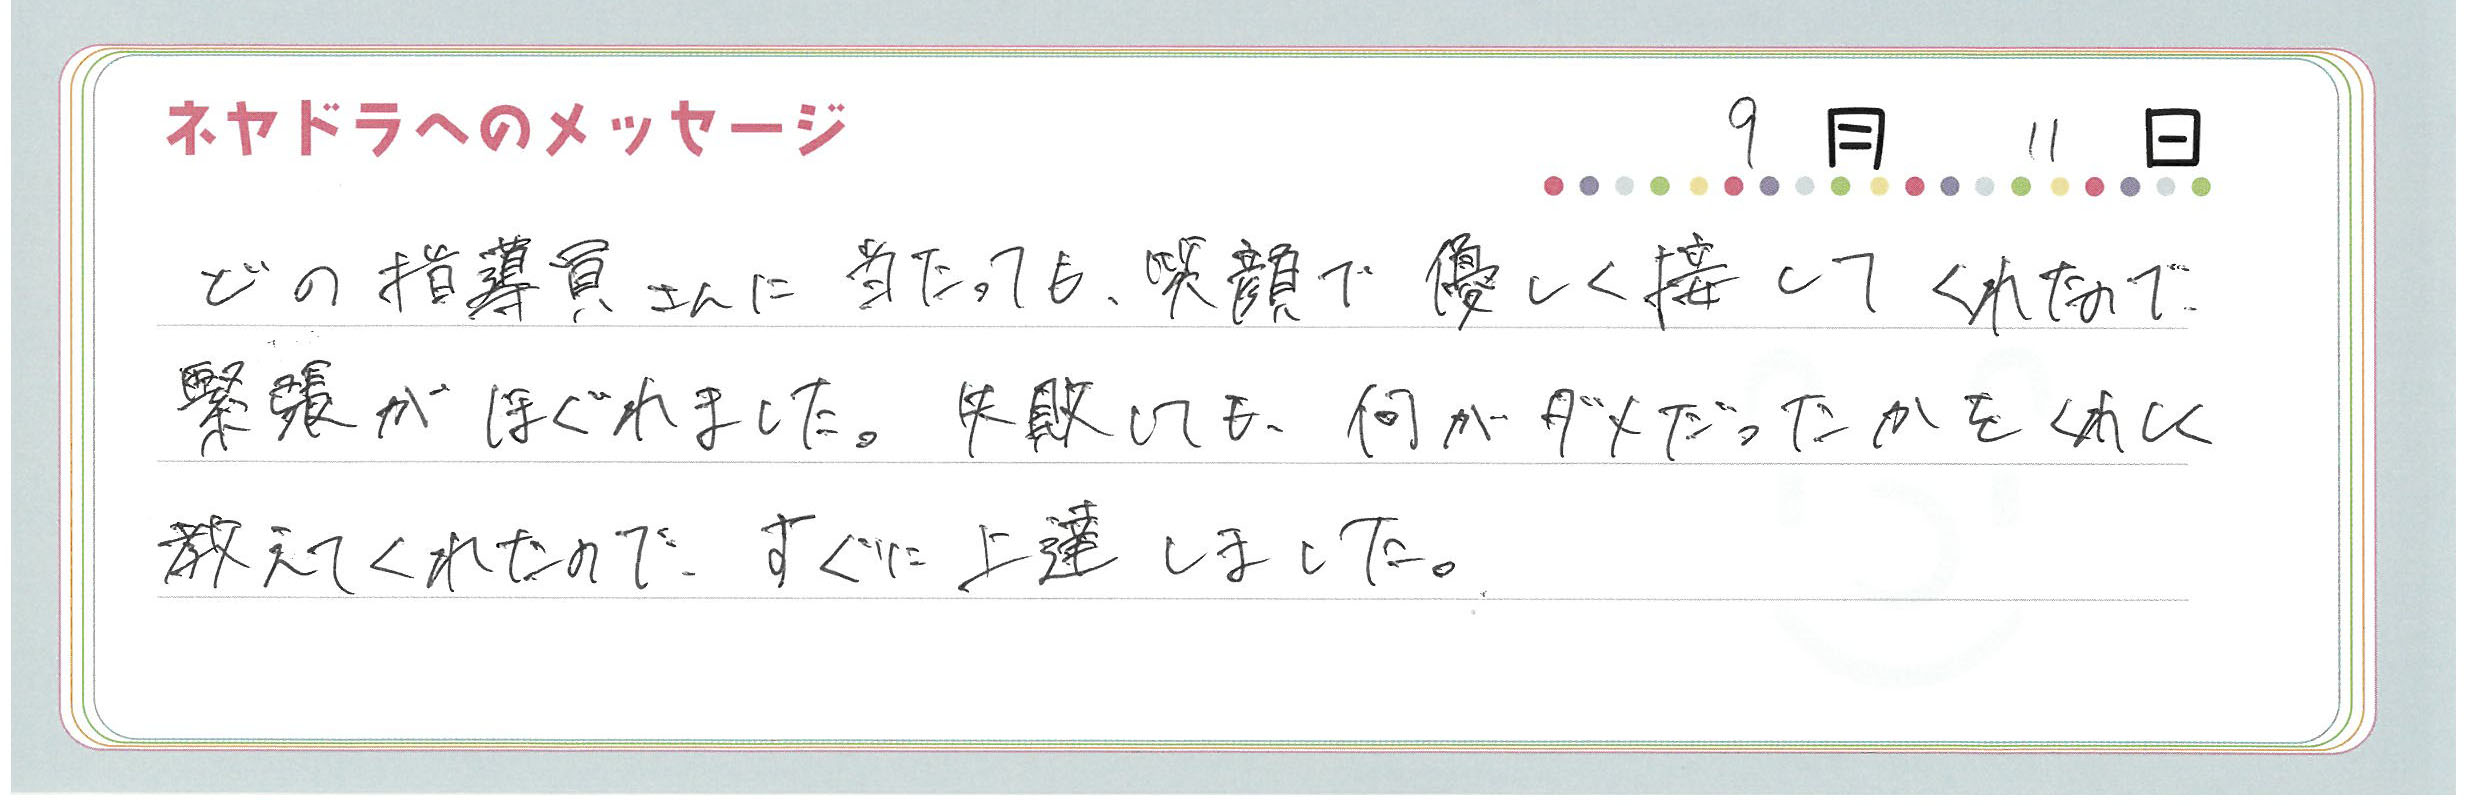 ネヤドラへのメッセージ
9月 11日
どの指導員さんに当たっても、笑顔で優しく接してくれたので
緊張がほぐれました。失敗しても、何がダメだったかをくわしく
教えてくれたので、すぐに上達しました。